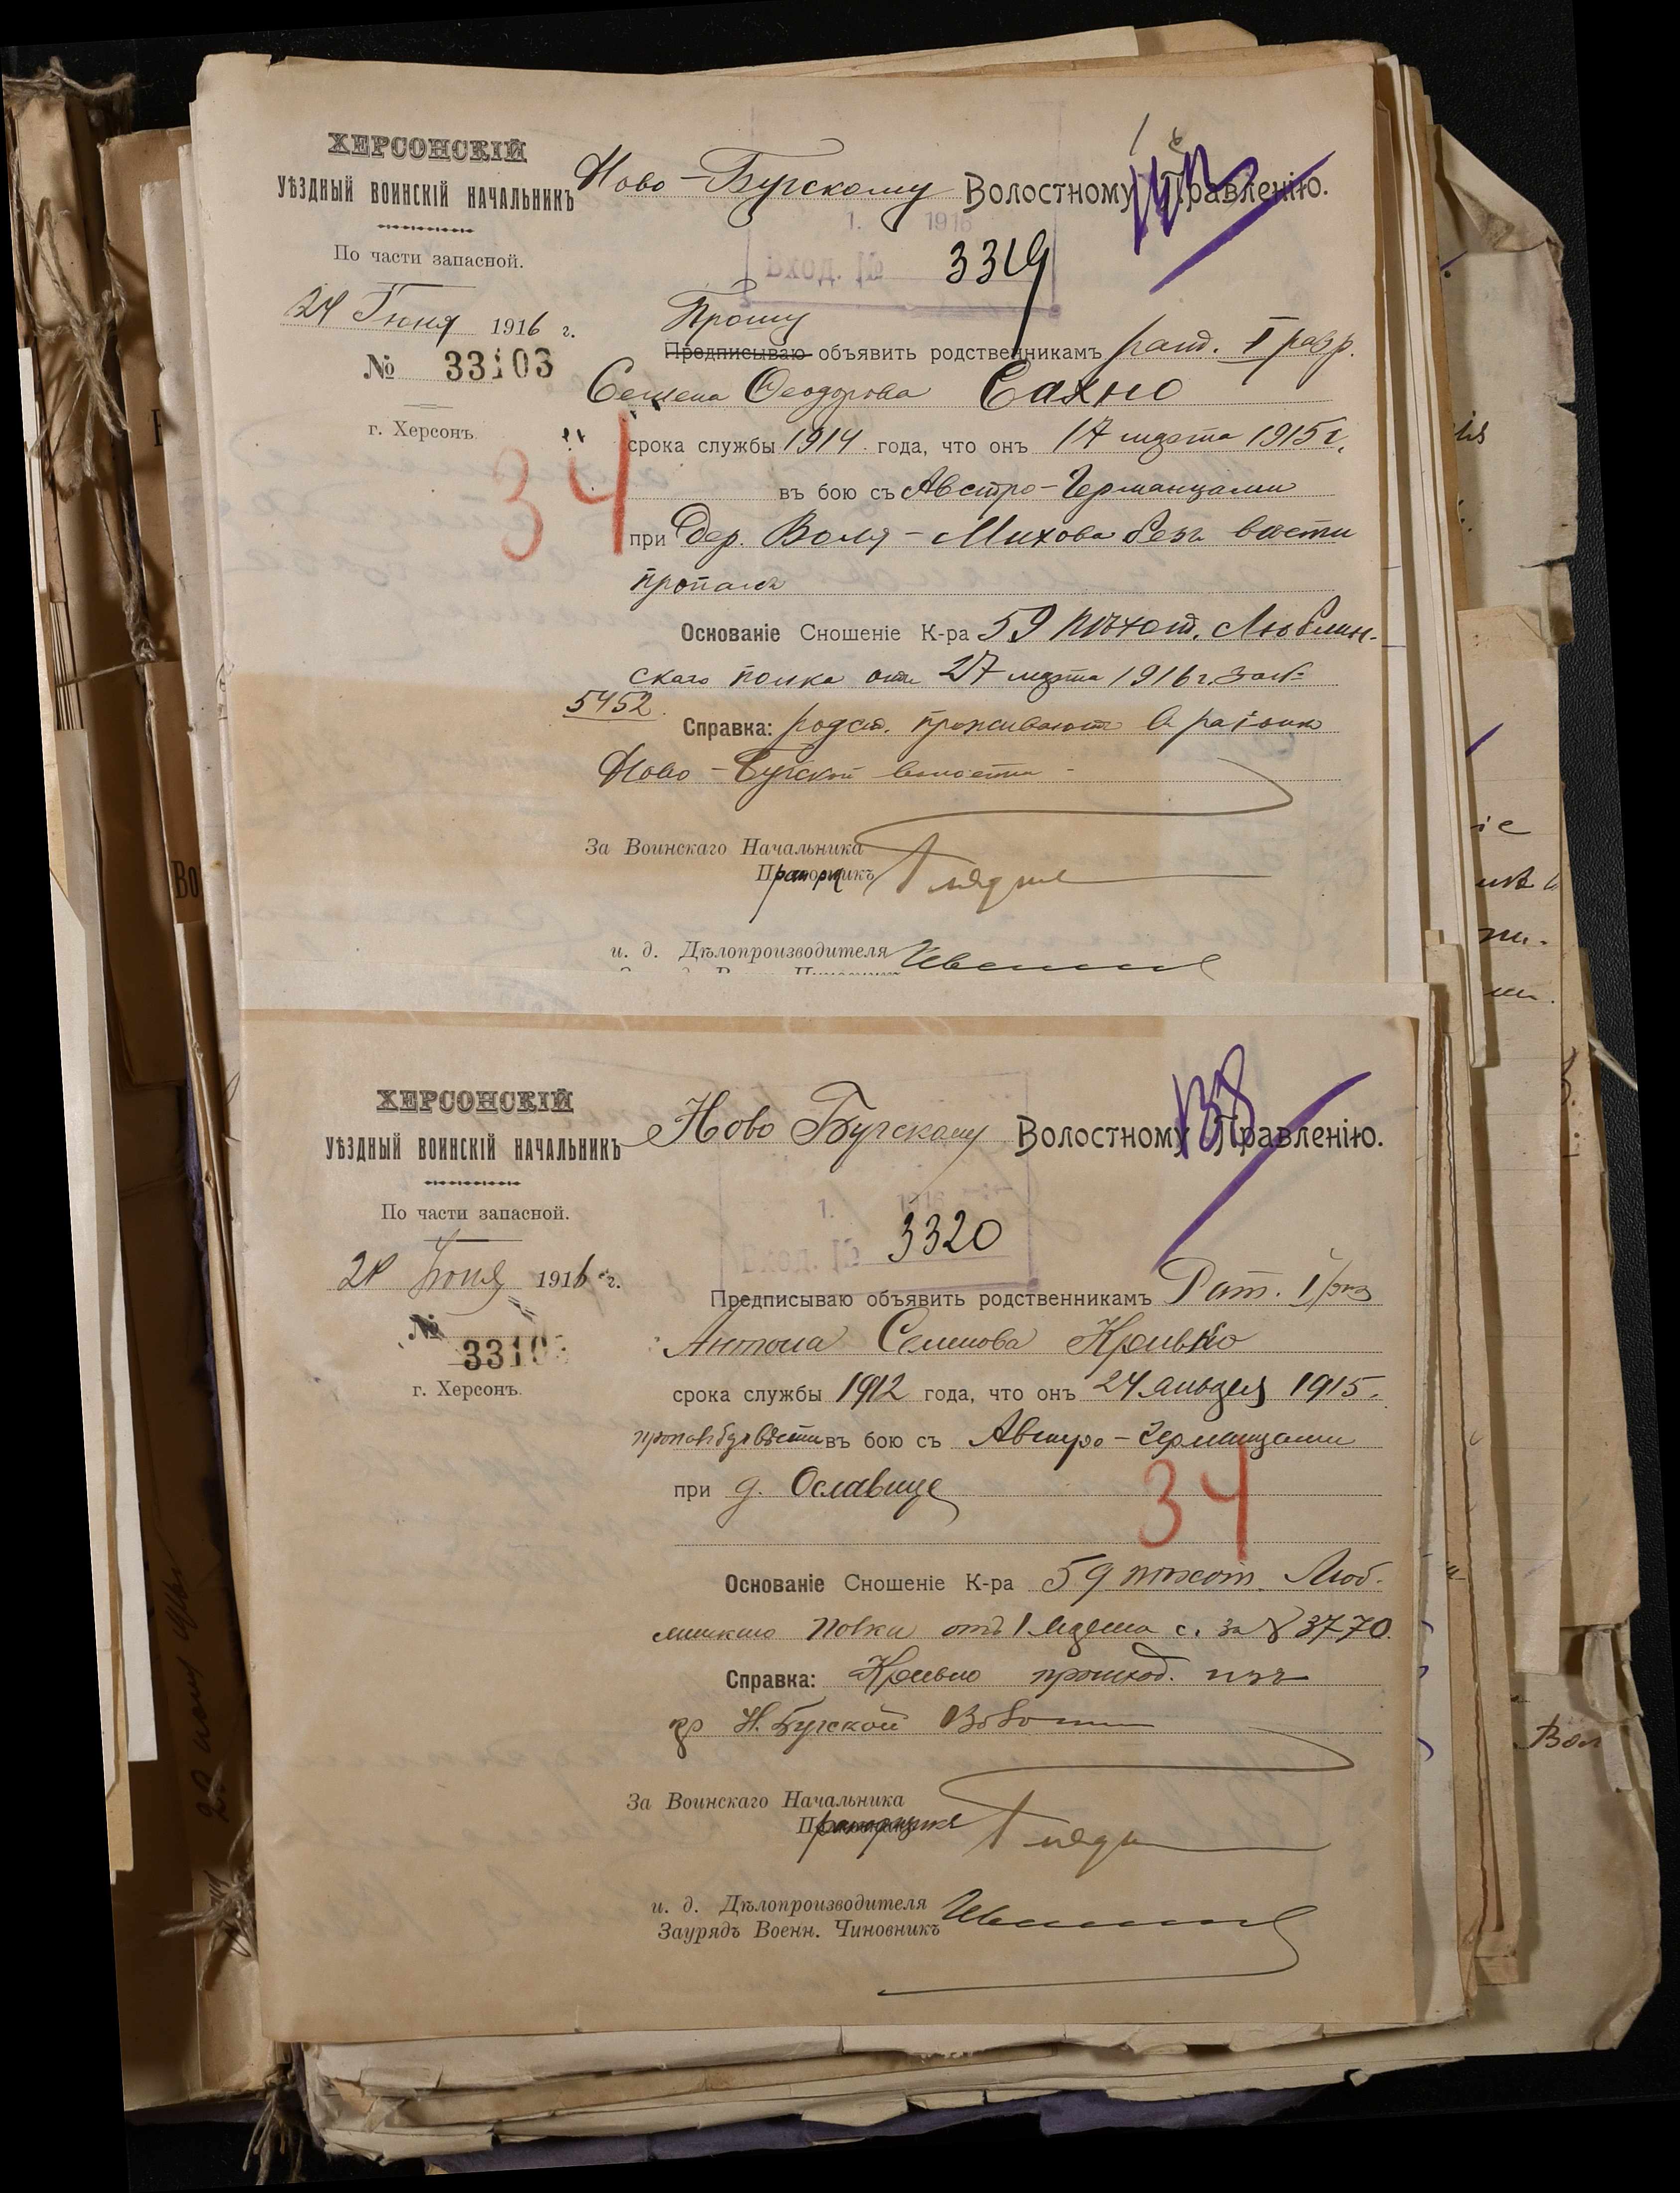 ХЕРСОНСКІЙ
УѢЗДНЫЙ ВОИНСКІЙ НАЧАЛЬНИКЪ
По части запасной.
24 Іюня 1916 г.
№ 33103
г. Херсонъ.
Ново-Бугскому Волостному Правленію.
1. 1916
Вход. № 3319
Прошу
Предписываю объявить родственникамъ рат. I разр.
Семена Ѳеодорова Сахно
34
срока службы 1914 года, что онъ 17 марта 1915 г.
въ бою съ Австро-Германцами
при дер. Воля-Михова безъ вѣсти
пропалъ
Основаніе Сношеніе К-ра 59 пѣхот. Люблин-
скаго полка отъ 27 марта 1916 г. за №
5452.
Справка: родст. проживаютъ въ районѣ
Ново-Бугской волости
За Воинскаго Начальника
Прапорщикъ
и. д. Дѣлопроизводителя
ХЕРСОНСКІЙ
УѢЗДНЫЙ ВОИНСКІЙ НАЧАЛЬНИКЪ
По части запасной.
Іюня 1916 г.
№ 3310
г. Херсонъ.
Ново Бугскому Волостному Правленію.
138
1. 1916
Вход. № 3320
Предписываю объявить родственникамъ Рат. I раз
Антона Семенова Кривко
срока службы 1912 года, что онъ 24 апрѣля 1915.
пропалъ безъ вѣсти въ бою съ Австро-Германцами
при д. Ославице
34
Основаніе Сношеніе К-ра 59 пѣхот. Люб-
линскаго полка отъ 1 марта с. г. за № 3770.
Справка: Кривко происход. изъ
гр Н. Бугской Волости
За Воинскаго Начальника
Прапорщикъ
и. д. Дѣлопроизводителя
Заурядъ Военн. Чиновникъ
Вол